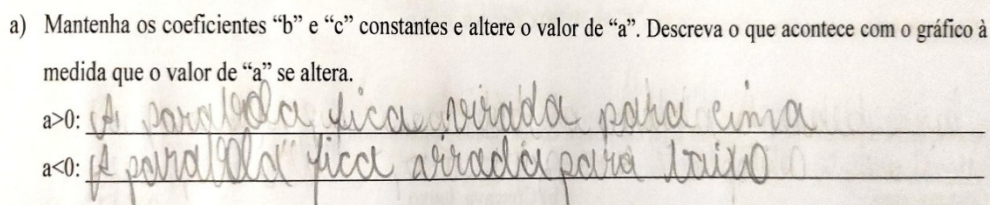 a) Mantenha os coeficientes “b” e “c” constantes e altere o valor de “a”. Descreva o que acontece com o gráfico à
medida que o valor de “a” se altera.
a>0: A parabola fica virada para cima
a<0: A parabola fica virada para baixo